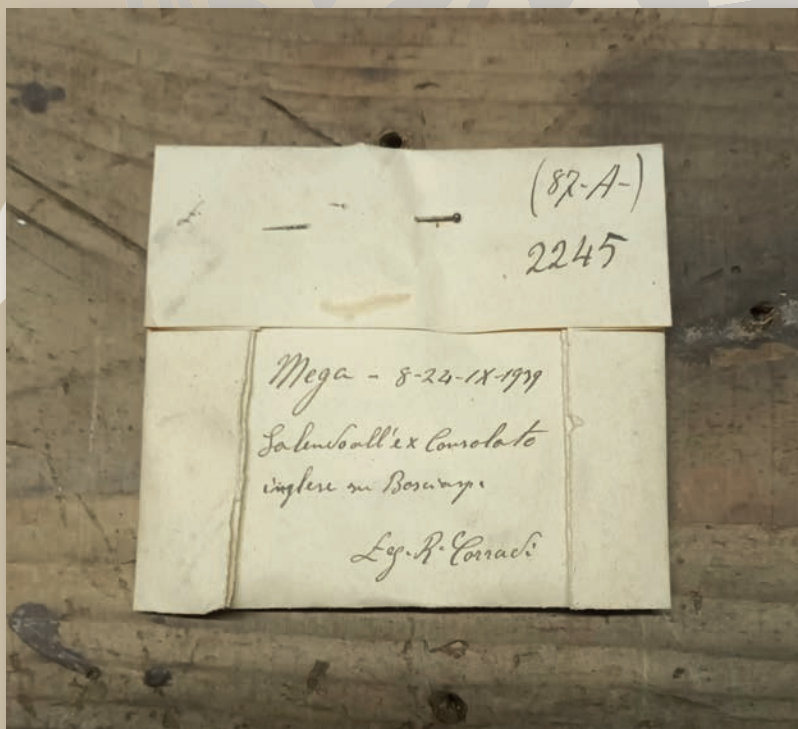 (87-A-)
2245
Mega - 8-24-IX-1939
Salendo all'ex Consolato
inglese su
Leg. R. Corradi